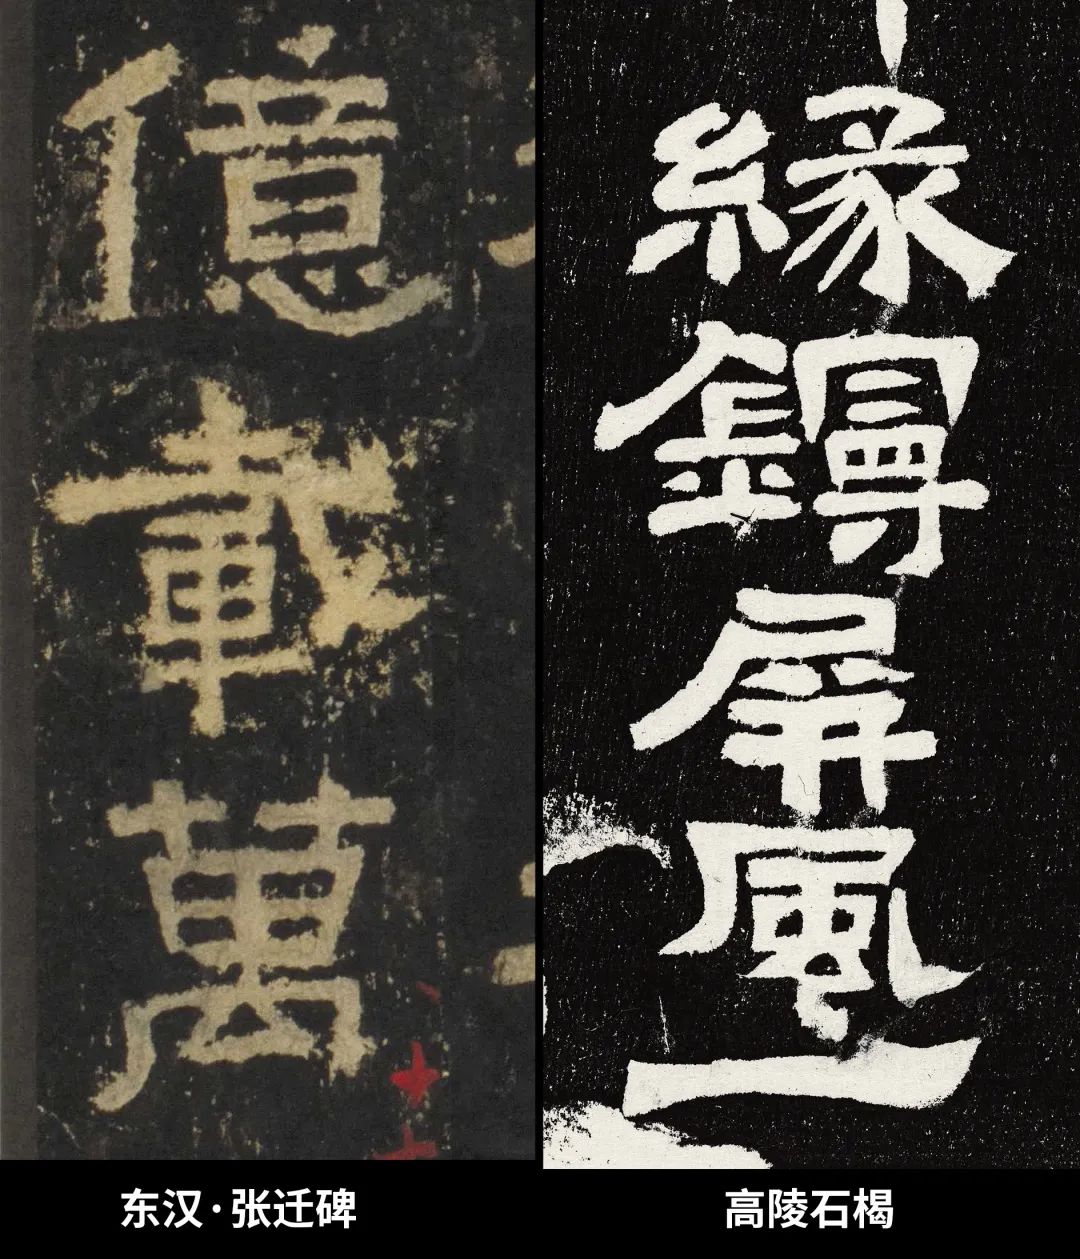 億載萬
緣鐏屏風一
东汉·张迁碑
高陵石楬